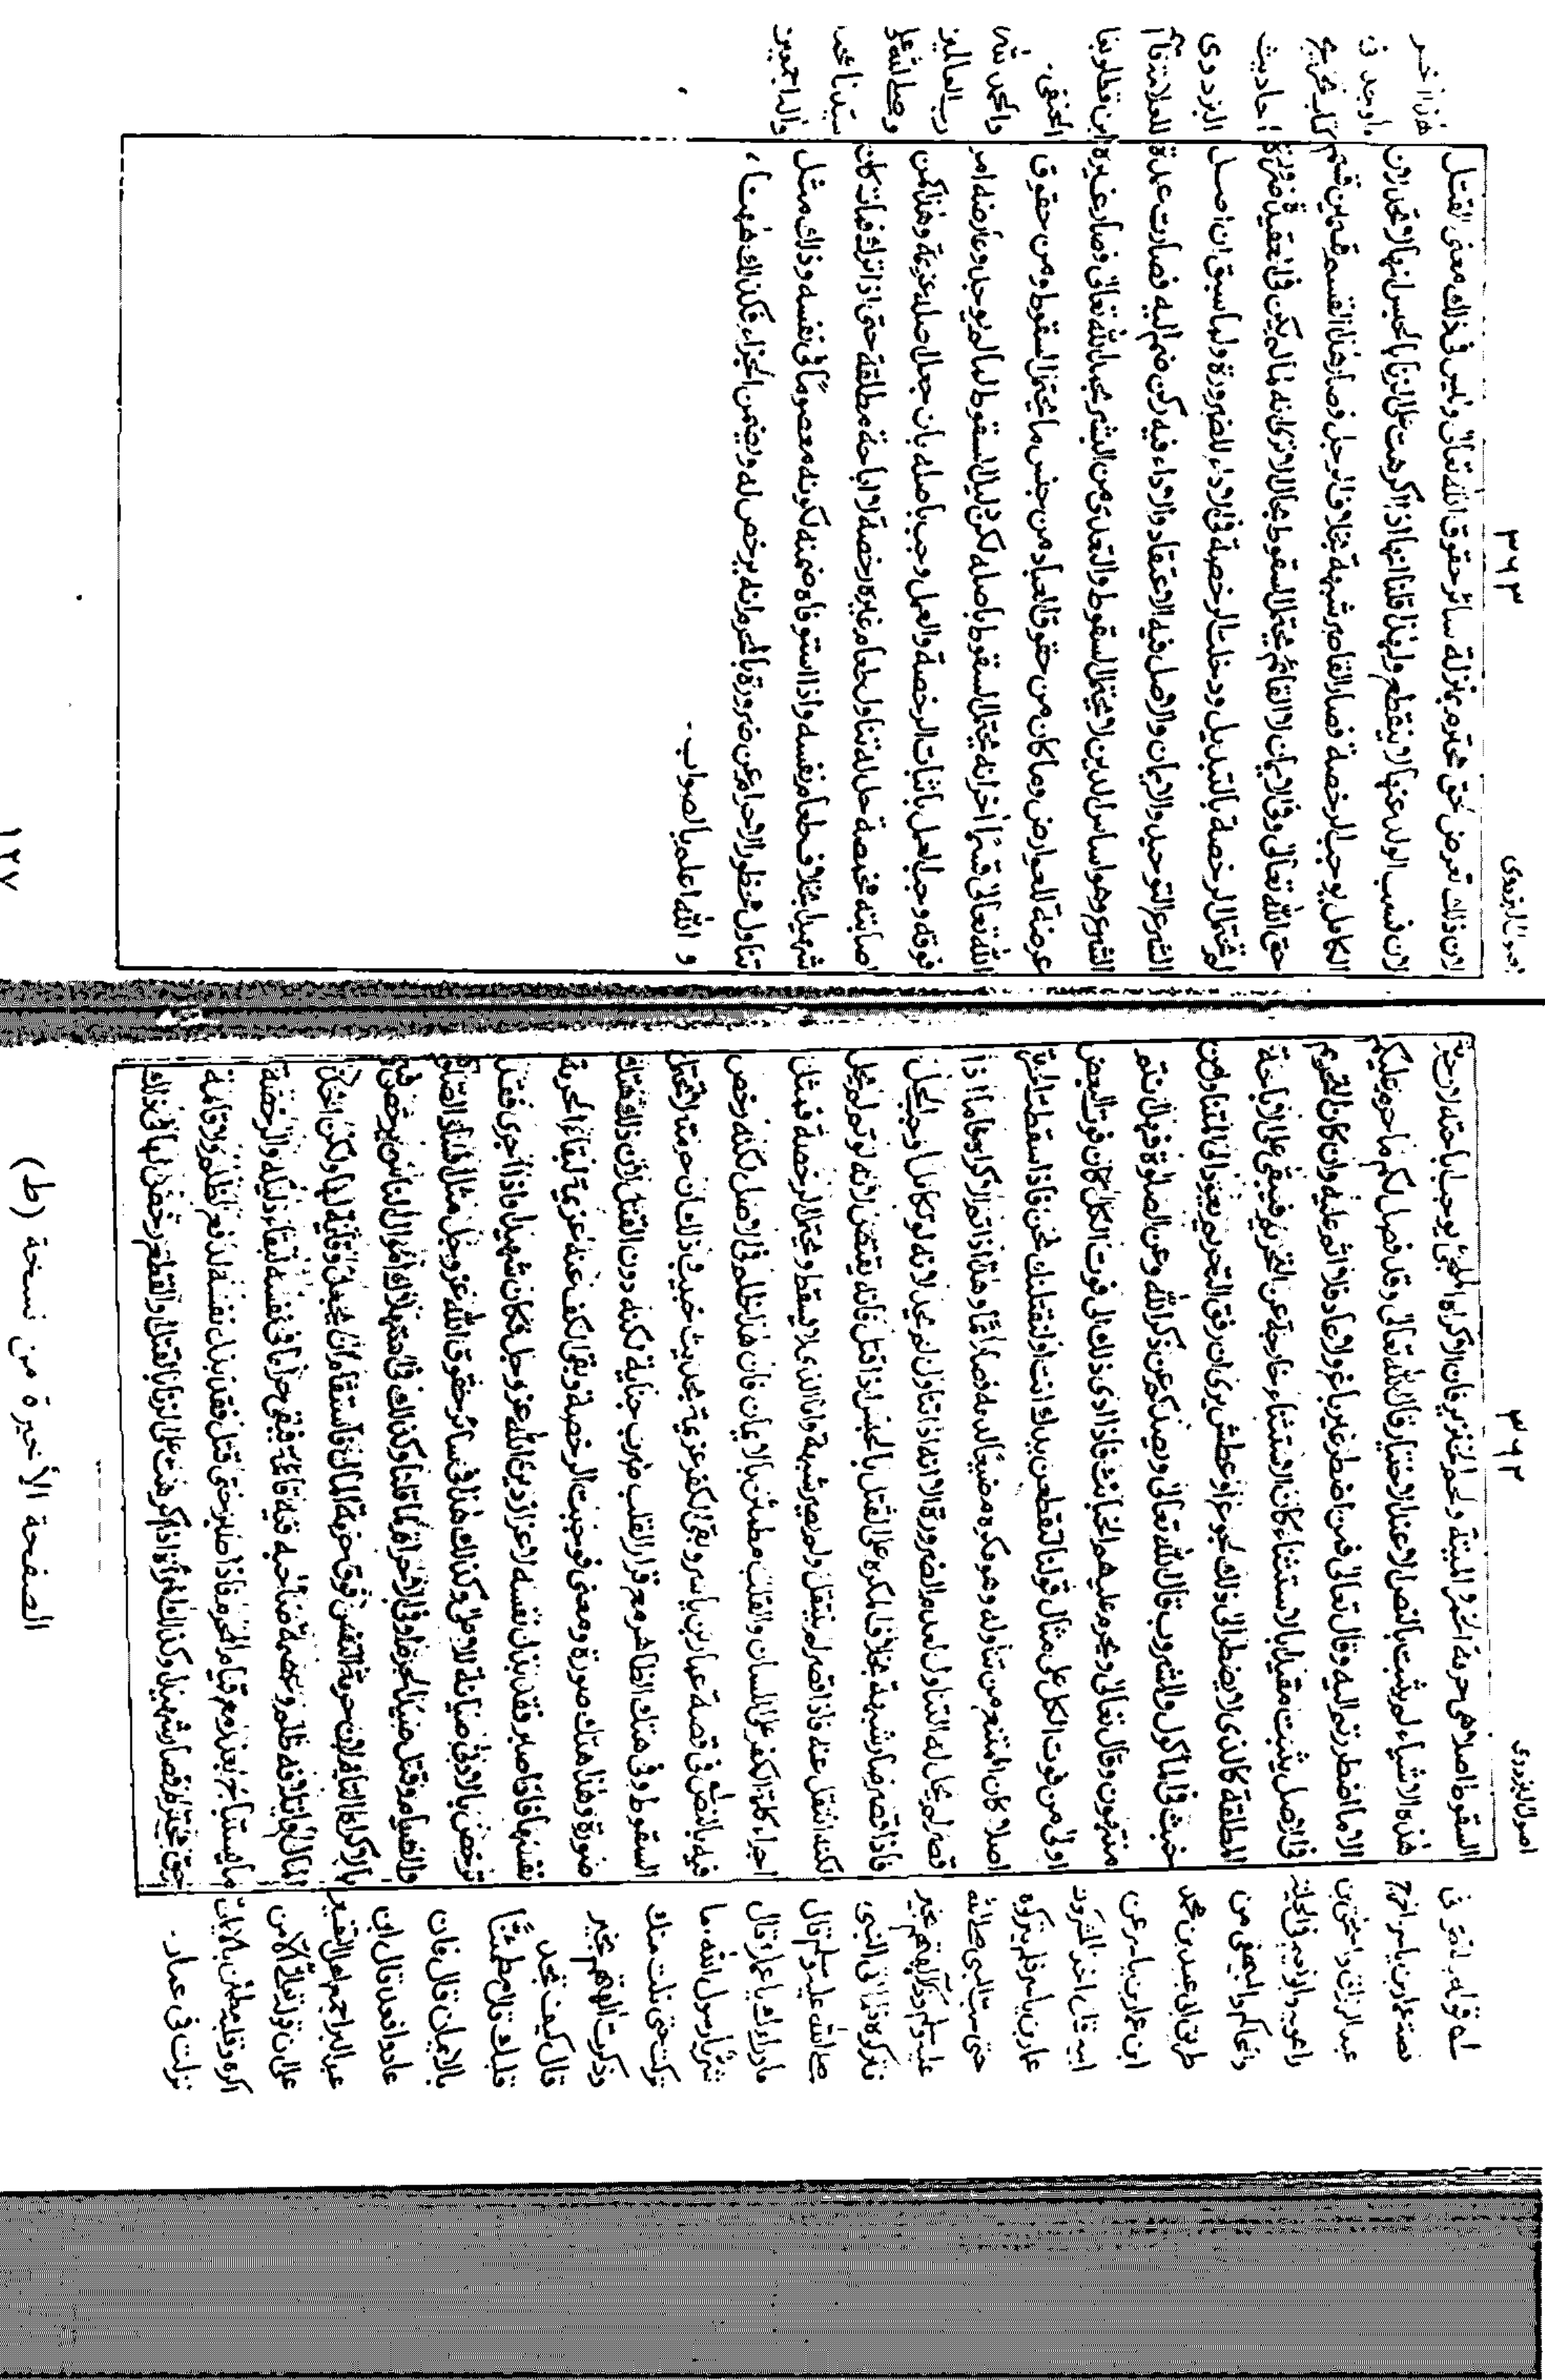 اصول البزدوى
٣٦٢
السقوط اصلا هى حرمة الخمر والميتة ولحم الخنزير فان الاكراه الملجئ يوجب اباحته لان حرمة
هذه الاشياء لم يثبت بالنص الا عند الاختيار قال الله تعالى وقد فصل لكم ما حرم عليكم
الا ما اضطررتم اليه وقال تعالى فمن اضطر غير باغ ولا عاد فلا اثم عليه وان كان التحريم
فى الاصل يثبت مقيدا بالاستثناء كان الاستثناء خارجا عن التحريم فيبقى على الاباحة
المطلقة كالذى لاضطر الى ذلك لجوع او عطش
خبث فى الماكول والمشروب قال الله تعالى ويصدكم عن ذكر الله وعن الصلوة فهل انتم
منتهون وقال تعالى ويحرم عليهم الخبائث فاذا ادى ذلك الى فوت الكل كان فوت البعض
اولى من فوت الكل على مثال قولنا لتقطعن يدك انت او لنقتلنك نحن فاذا سقطت الحرمة
اصلا كان الممتنع من تناوله وهو مكره مضيعا لدمه فصار اثما وهذا اذا تم الاكراه فاما اذا
قصر لم يحل له التناول لعدم الضرورة الا انه اذا تناول لم يحد لانه لو تكامل اوجب الحل
فاذا قصر صار شبهة بخلاف المكره على القتل بالحبس اذا قتل فانه يقتص لانه لو تم لم يحل
لكنه انتقل عنه فاذا قصر لم ينتقل ولم يصر شبهة واما الذى لا يسقط ويحتمل الرخصة فمثل
اجراء كلمة الكفر على اللسان والقلب مطمئن بالايمان فان هذا ظلم فى الاصل لكنه رخص
فيه بالنص فى قصة عمار بن ياسر وبقى الكفر عزيمة بحديث خبيب وذلك ان حرمته لا تحتمل
السقوط وفى هتك الظاهر مع قرار القلب ضرب جناية لكنه دون القتل لان ذلك هتك
صورة وهذا هتك صورة ومعنى فوجبت الرخصة وبقى الكف عنه عزيمة لبقاء الحرمة
نفسها فاذا صبر فقد بذل نفسه لاعزاز دين الله عز وجل فكان شهيدا واذا اجرى فقد
ترخص بالادنى صيانة للاعلى وكذلك هذا فى سائر حقوق الله عز وجل مثل افساد الصلوة
والصيام وقتل صيد الحرم او فى الاحرام لما قلنا وكذلك فى استهلاك اموال الناس يرخص فيه
بالاكراه التام لان حرمة النفس فوق حرمة المال فاستقام ان يجعل وقاية لها ولكن اخذ
المال واتلافه ظلم وعصمة صاحبه فيه قائمة فبقى حراما فى نفسه لبقاء دليله والرخصة
ما يستباح بعذر مع قيام المحرم فاذا صبر حتى قتل فقد بذل نفسه لدفع الظلم ولاقامة
حق محترم فصار شهيدا وكذلك المرأة اذا اكرهت على الزنا بالقتل او القطع رخص لها فى ذلك
له قوله بالنص فى
قصة عمار بن ياسر اخرج
عبد الرزاق واسحق بن
راهويه وابو نعيم فى الحلية
والحاكم والبيهقى من
طريق ابى عبيدة بن محمد
ابن عمار بن ياسر عن
ابيه قال اخذ المشركون
عمار بن ياسر فلم يتركوه
حتى سب النبى صلى الله
عليه وسلم وذكر الهتهم بخير
فتركوه فلما اتى النبى
صلى الله عليه وسلم قال
ما وراءك يا عمار قال
شر يا رسول الله ما
تركت حتى نلت منك
وذكرت الهتهم بخير
قال كيف تجد
قلبك قال مطمئنا
بالايمان قال فان
عادوا فعد قال ابن
عبد البر اجمع اهل التفسير
على ان قوله تعالى الا من
اكره وقلبه مطمئن بالايمان
نزلت فى عمار.
اصول البزدوى
٣٦٣
لان ذلك تعرض لحق محترم بمنزلة سائر حقوق الله تعالى وليس فى ذلك معنى القتل
لان نسب الولد عنها لا ينقطع ولهذا قلنا انها اذا اكرهت على الزنا بالحبس انها لا تحد لان
الكامل يوجب الرخصة فصار القاصر شبهة بخلاف الرجل وصار هذا القسم قسمين قسم
حق الله تعالى وفى الايمان لا القائم يحتمل السقوط بحال الا ترى انه لما لم يكن فى العقيدة ضرورة
لم تحتمل الرخصة بالتبديل ودخلت الرخصة فى الاداء للضرورة ولما سبق ان اصل
الشرع التوحيد والايمان والاصل فيه الاعتقاد والاداء فيه ركن ضم اليه فصارت عمدة
الشرع وهو اساس الدين لا يحتمل السقوط والتعدى من البشر بحمد الله تعالى وصار غيره
عرضة للعوارض وما كان من حقوق العباد من جنس ما يحتمل السقوط ومن حقوق
الله تعالى قسما اخر انه يحتمل السقوط باصله لكن دليل السقوط لما لم يوجد وعارضه امر
فوقه وجب العمل باثبات الرخصة والعمل وجب باصله بان جعل اصله عزيمة وهذا كمن
اصابته مخمصة حل له تناول طعام غيره رخصة لا اباحة مطلقة حتى اذا ترك فمات كان
شهيدا بخلاف طعام نفسه واذا استوفاه ضمنه لكونه معصوما فى نفسه وذلك مثل
تناول محظور الاحرام عن ضرورة بالمحرم انه يرخص له ويضمن الجزاء فكذلك ههنا،
و الله اعلم بالصواب.
هذا اخر
ما وجد فى
كتاب تخريج
احاديث
البزدوى
للعلامة قاسم
ابن قطلوبغا
الحنفى.
والحمد لله
رب العالمين
وصلى الله على
سيدنا محمد
واله اجمعين
الصفحة الأخيرة من نسخة (ط)
١٢٧